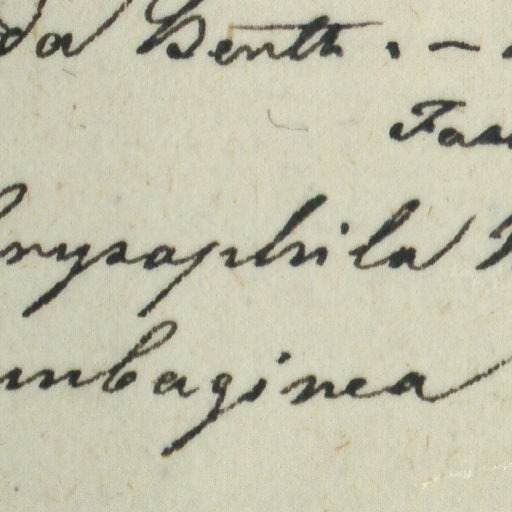 da Benth. -
Fas
hrysophila
umbaginea